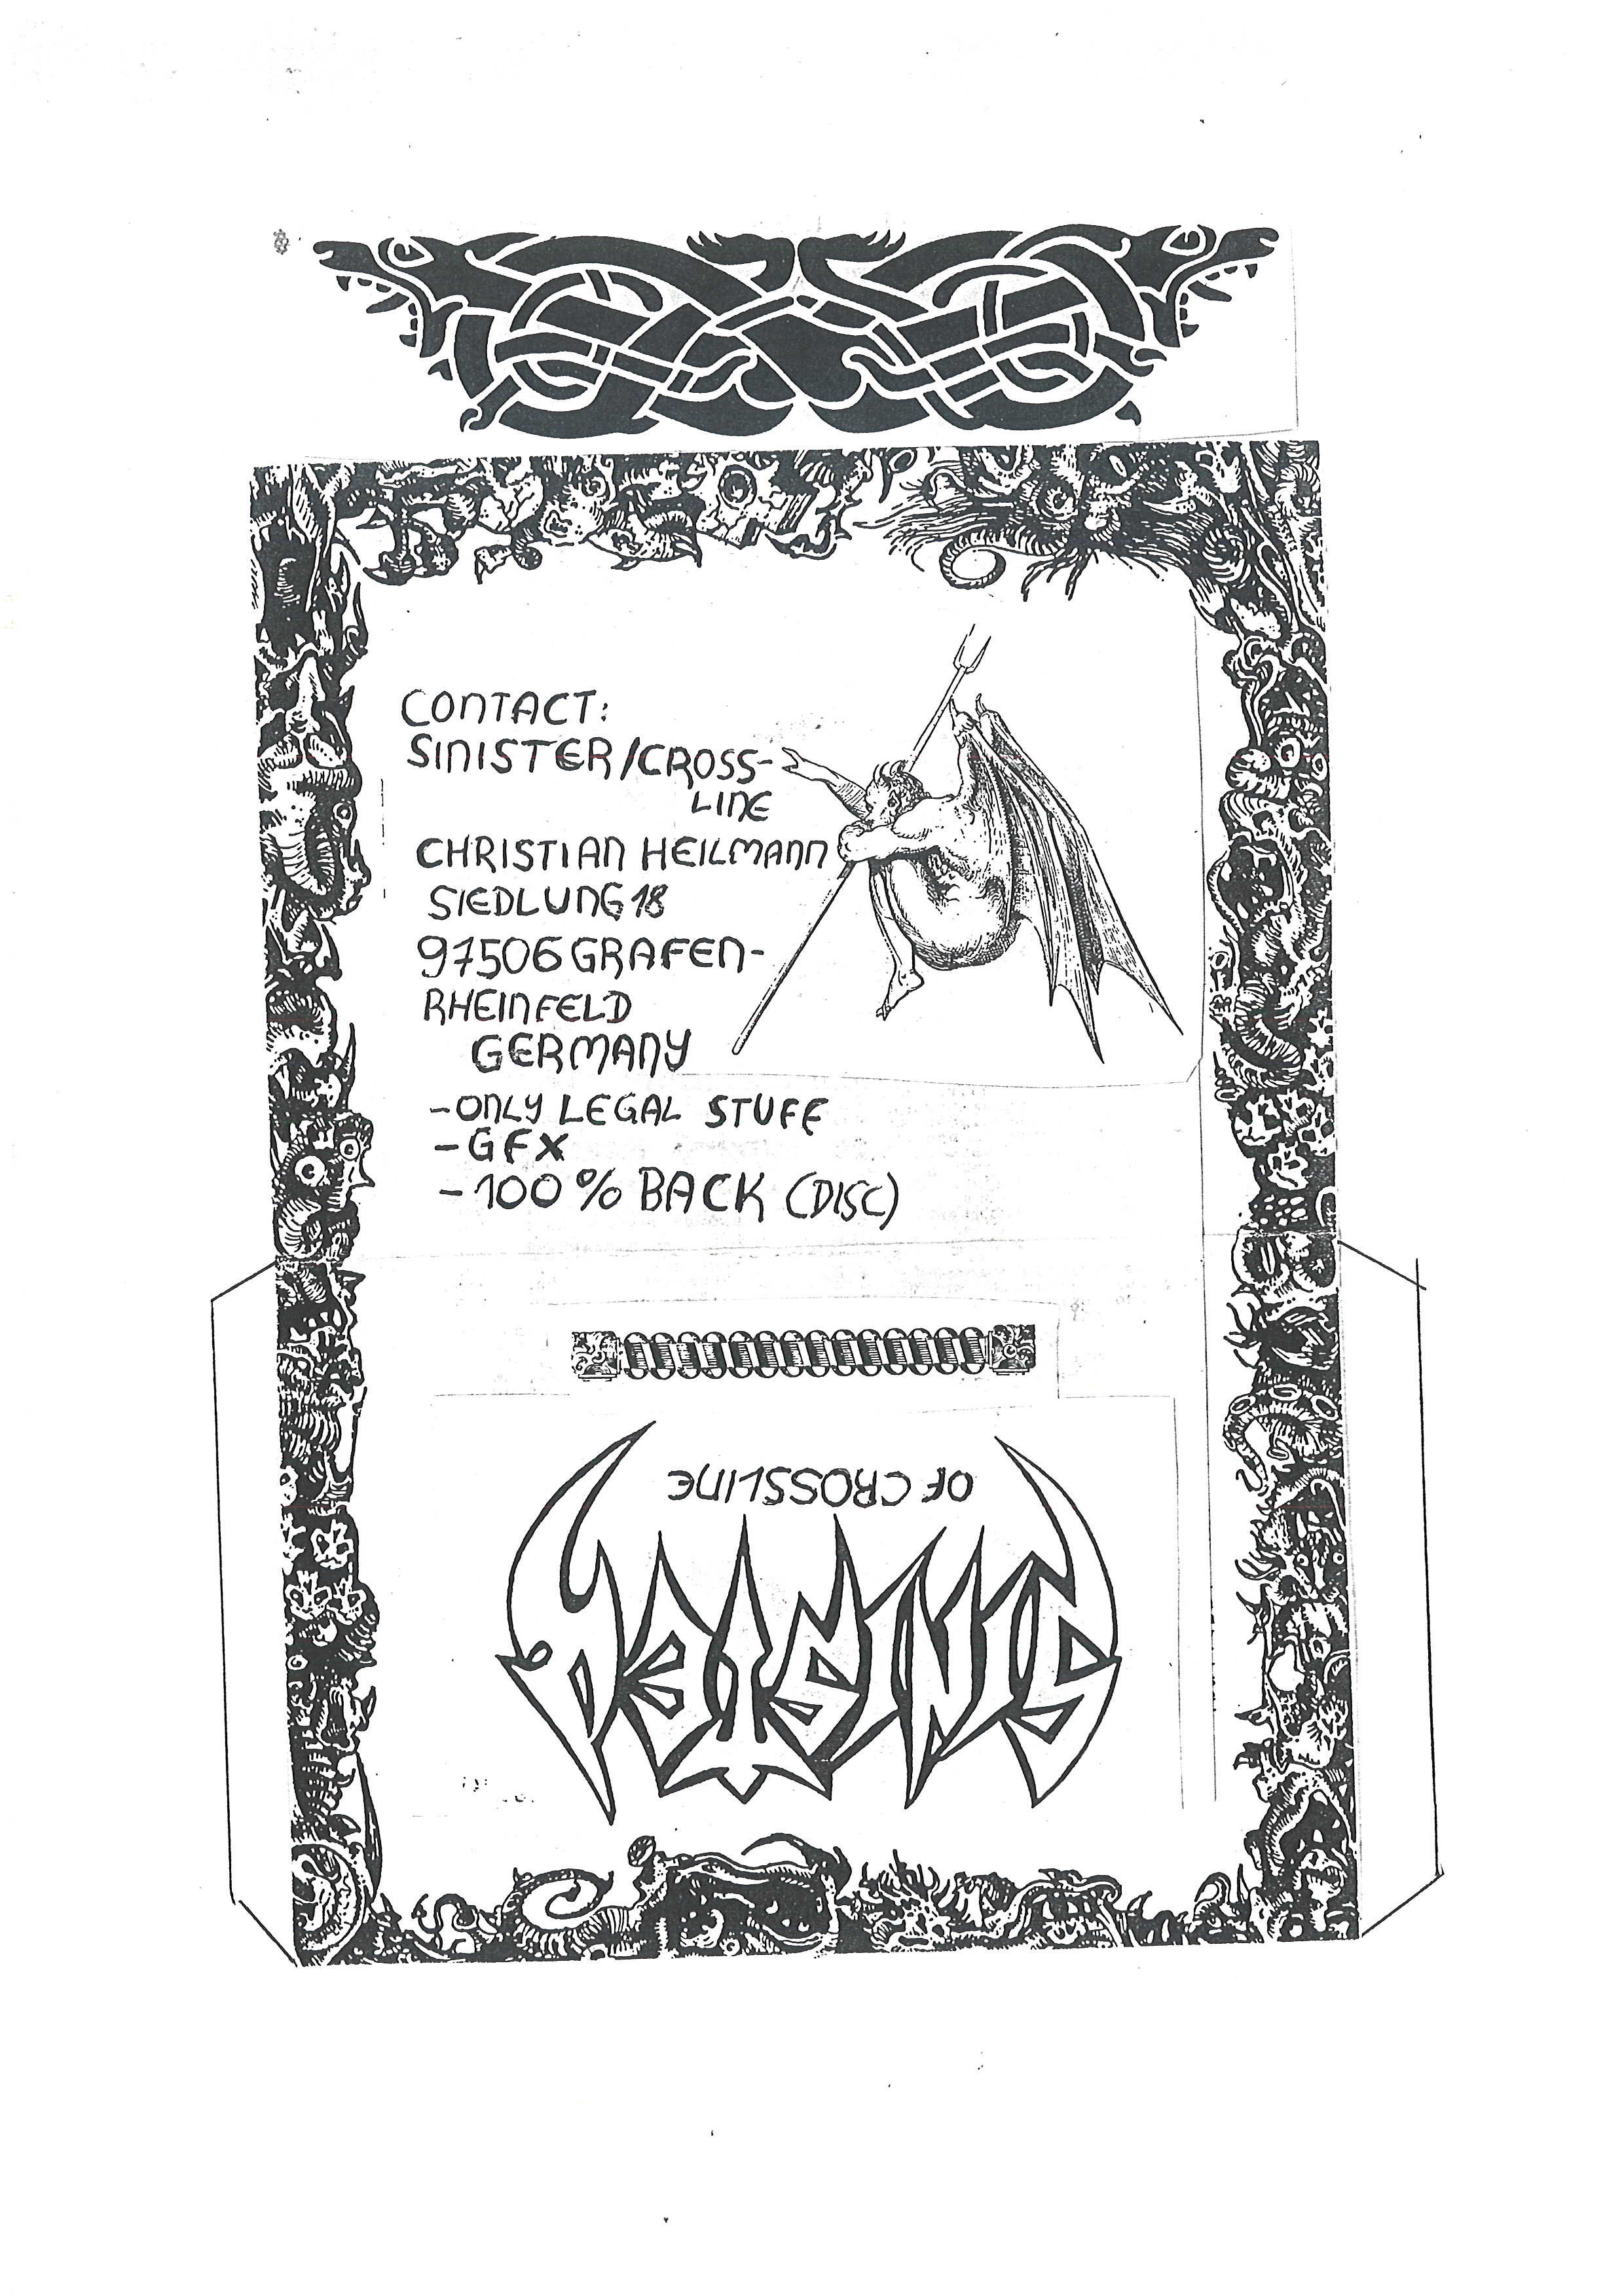 CONTACT:
SINISTER/CROSS-
LINE
CHRISTIAN HEILMANN
SIEDLUNG 18
97506 GRAFEN-
RHEINFELD
GERMANY
-ONLY LEGAL STUFF
-GFX
-100% BACK (DISC)
SINISTER
OF CROSSLINE